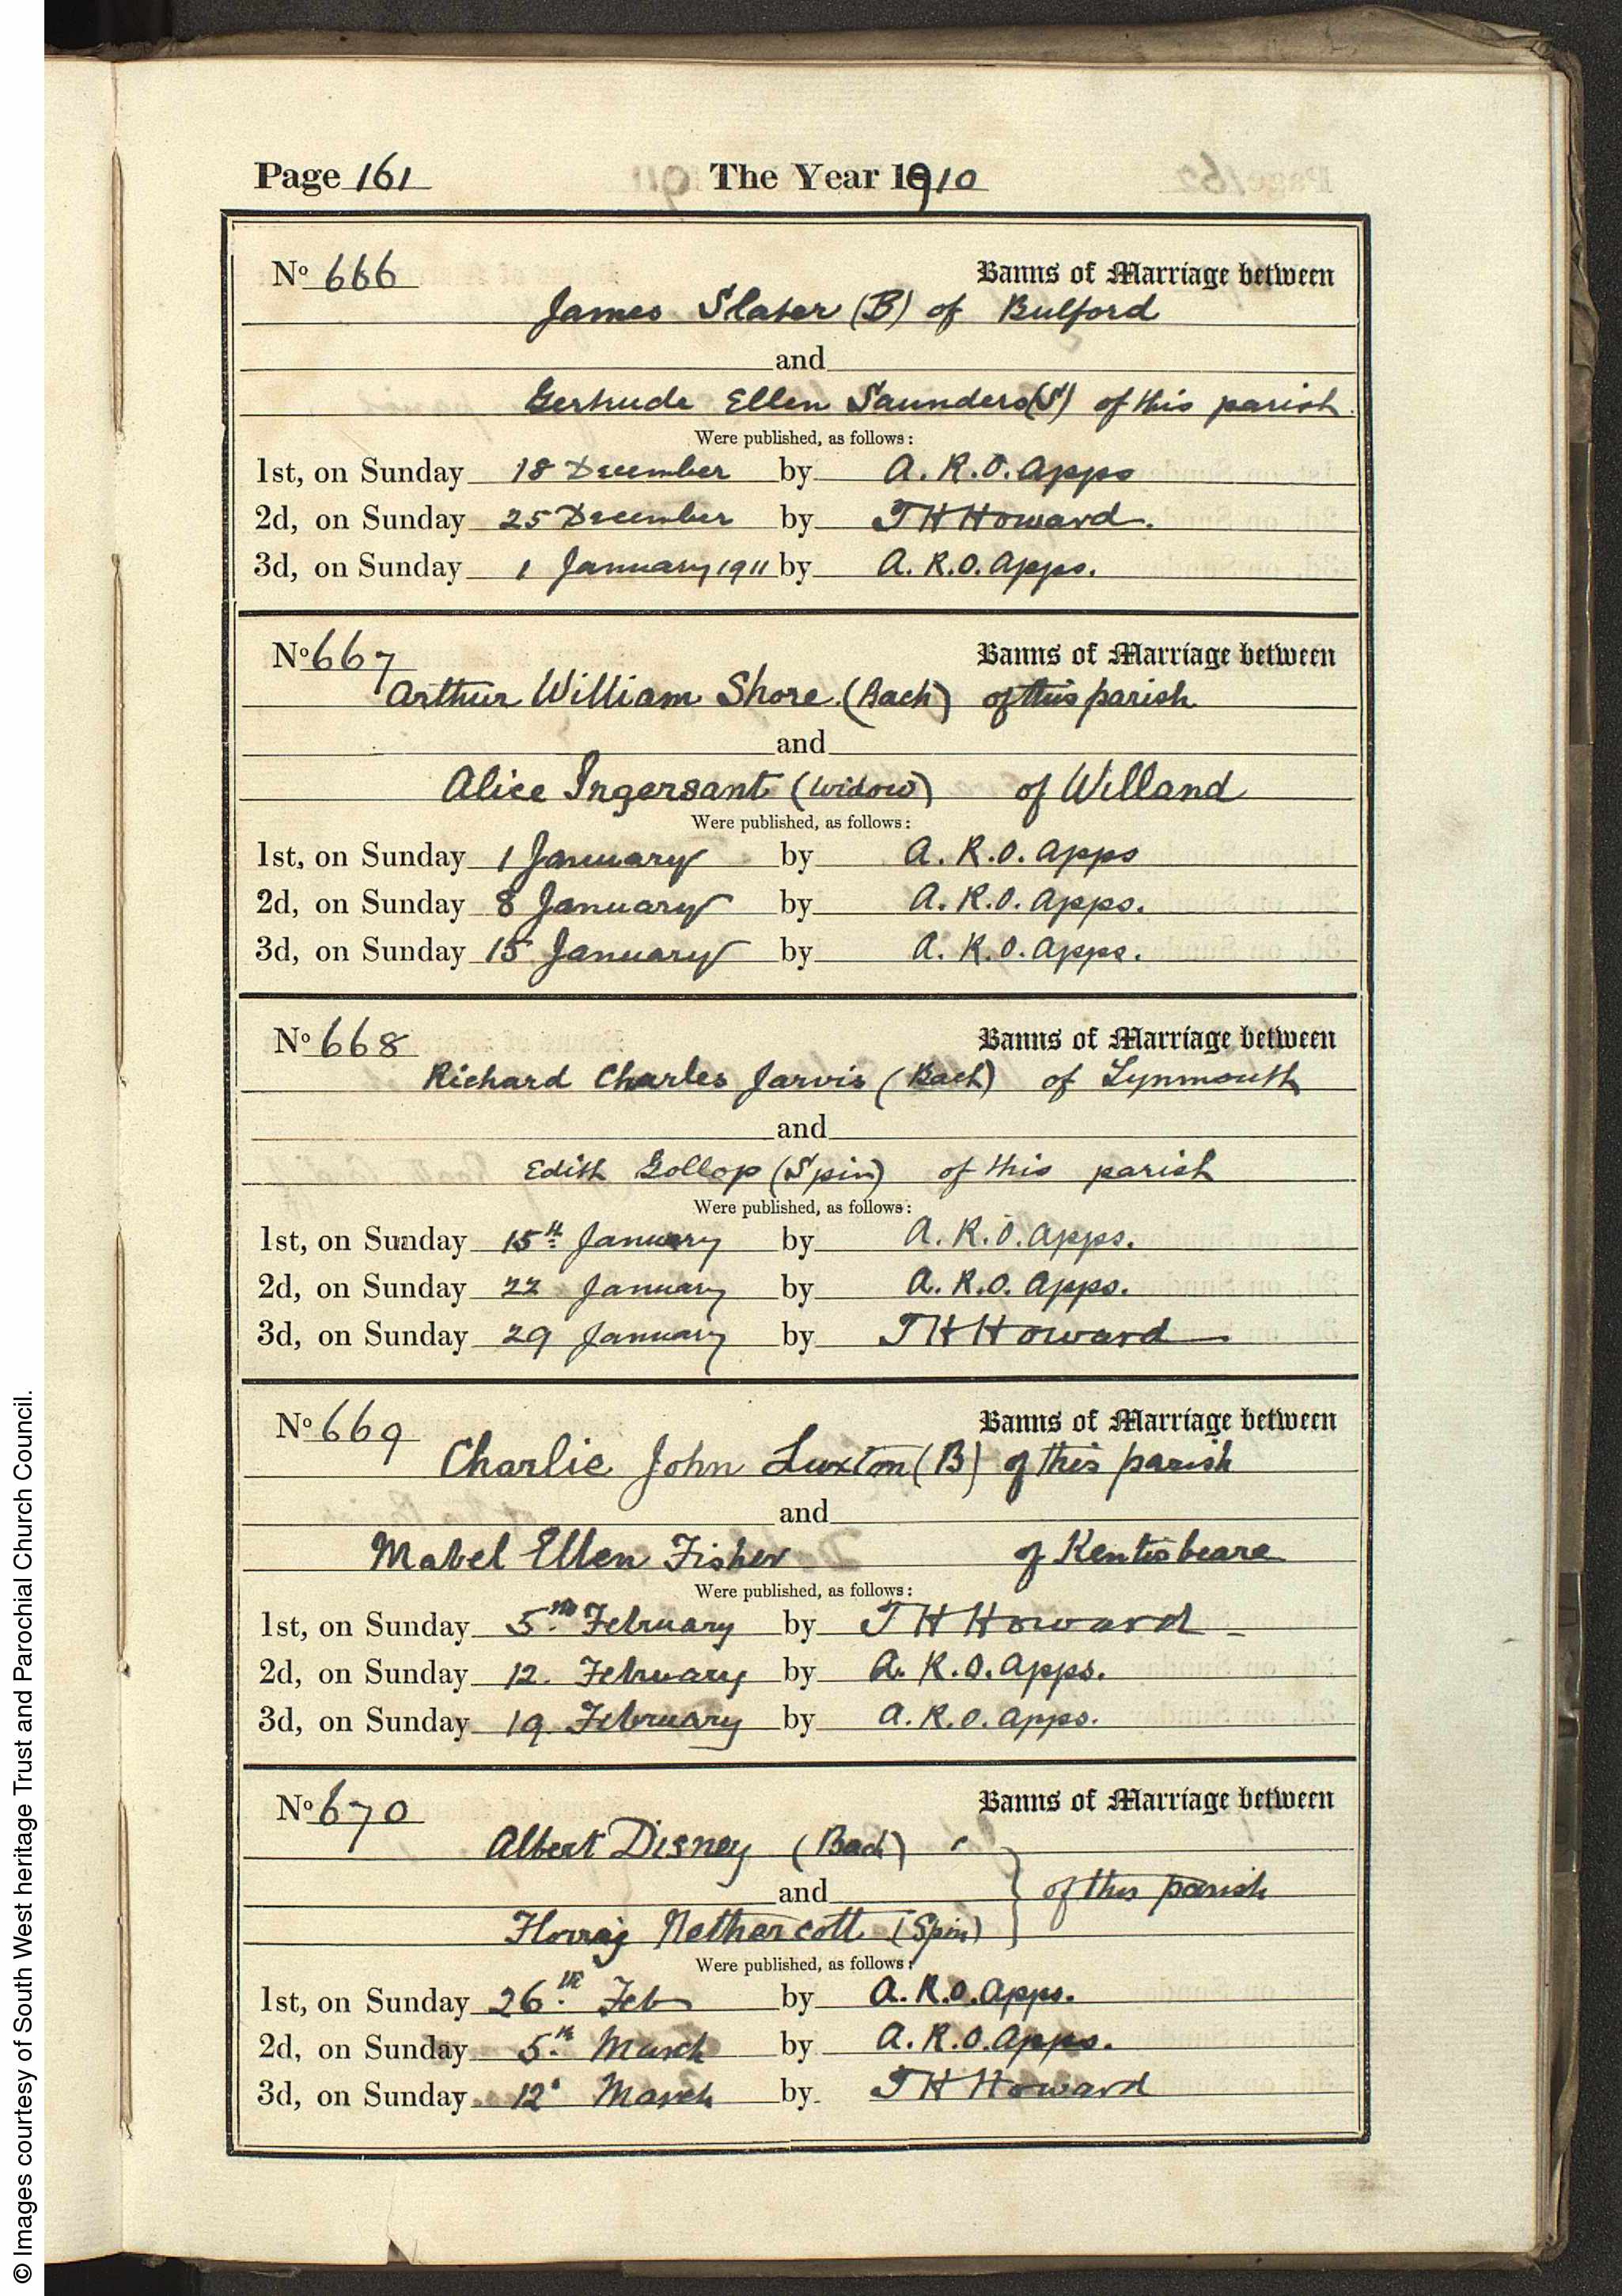 Page 161 The Year 1910
No 666 Banns of Marriage between
James Slater (B) of Bulford
and
Gertrude Ellen Saunders (S) of this parish
Were published, as follows:
1st, on Sunday 18 December by A. R. O. Apps
2d, on Sunday 25 December by T H Howard.
3d, on Sunday 1 January 1911 by A. R. O. Apps.
No 667 Banns of Marriage between
Arthur William Shore (Bach) of this parish
and
Alice Ingersant (widow) of Willand
Were published, as follows:
1st, on Sunday 1 January by A. R. O. Apps
2d, on Sunday 8 January by A. R. O. Apps.
3d, on Sunday 15 January by A. R. O. Apps.
No 668 Banns of Marriage between
Richard Charles Jarvis (Bach) of Lynmouth
and
Edith Gollop (Spin) of this parish
Were published, as follows:
1st, on Sunday 15th January by A. R. O. Apps.
2d, on Sunday 22 January by A. R. O. Apps.
3d, on Sunday 29 January by T H Howard
No 669 Banns of Marriage between
Charlie John Luxton (B) of this parish
and
Mabel Ellen Fisher of Kentisbeare
Were published, as follows:
1st, on Sunday 5th February by T H Howard
2d, on Sunday 12. February by A. R. O. Apps.
3d, on Sunday 19 February by A. R. O. Apps.
No 670 Banns of Marriage between
Albert Disney (Bach)
and of this parish
Nethercott (Spin)
Were published, as follows:
1st, on Sunday 26th Feb by A. R. O. Apps.
2d, on Sunday 5th March by A. R. O. Apps.
3d, on Sunday 12 March by T H Howard
© Images courtesy of South West heritage Trust and Parochial Church Council.